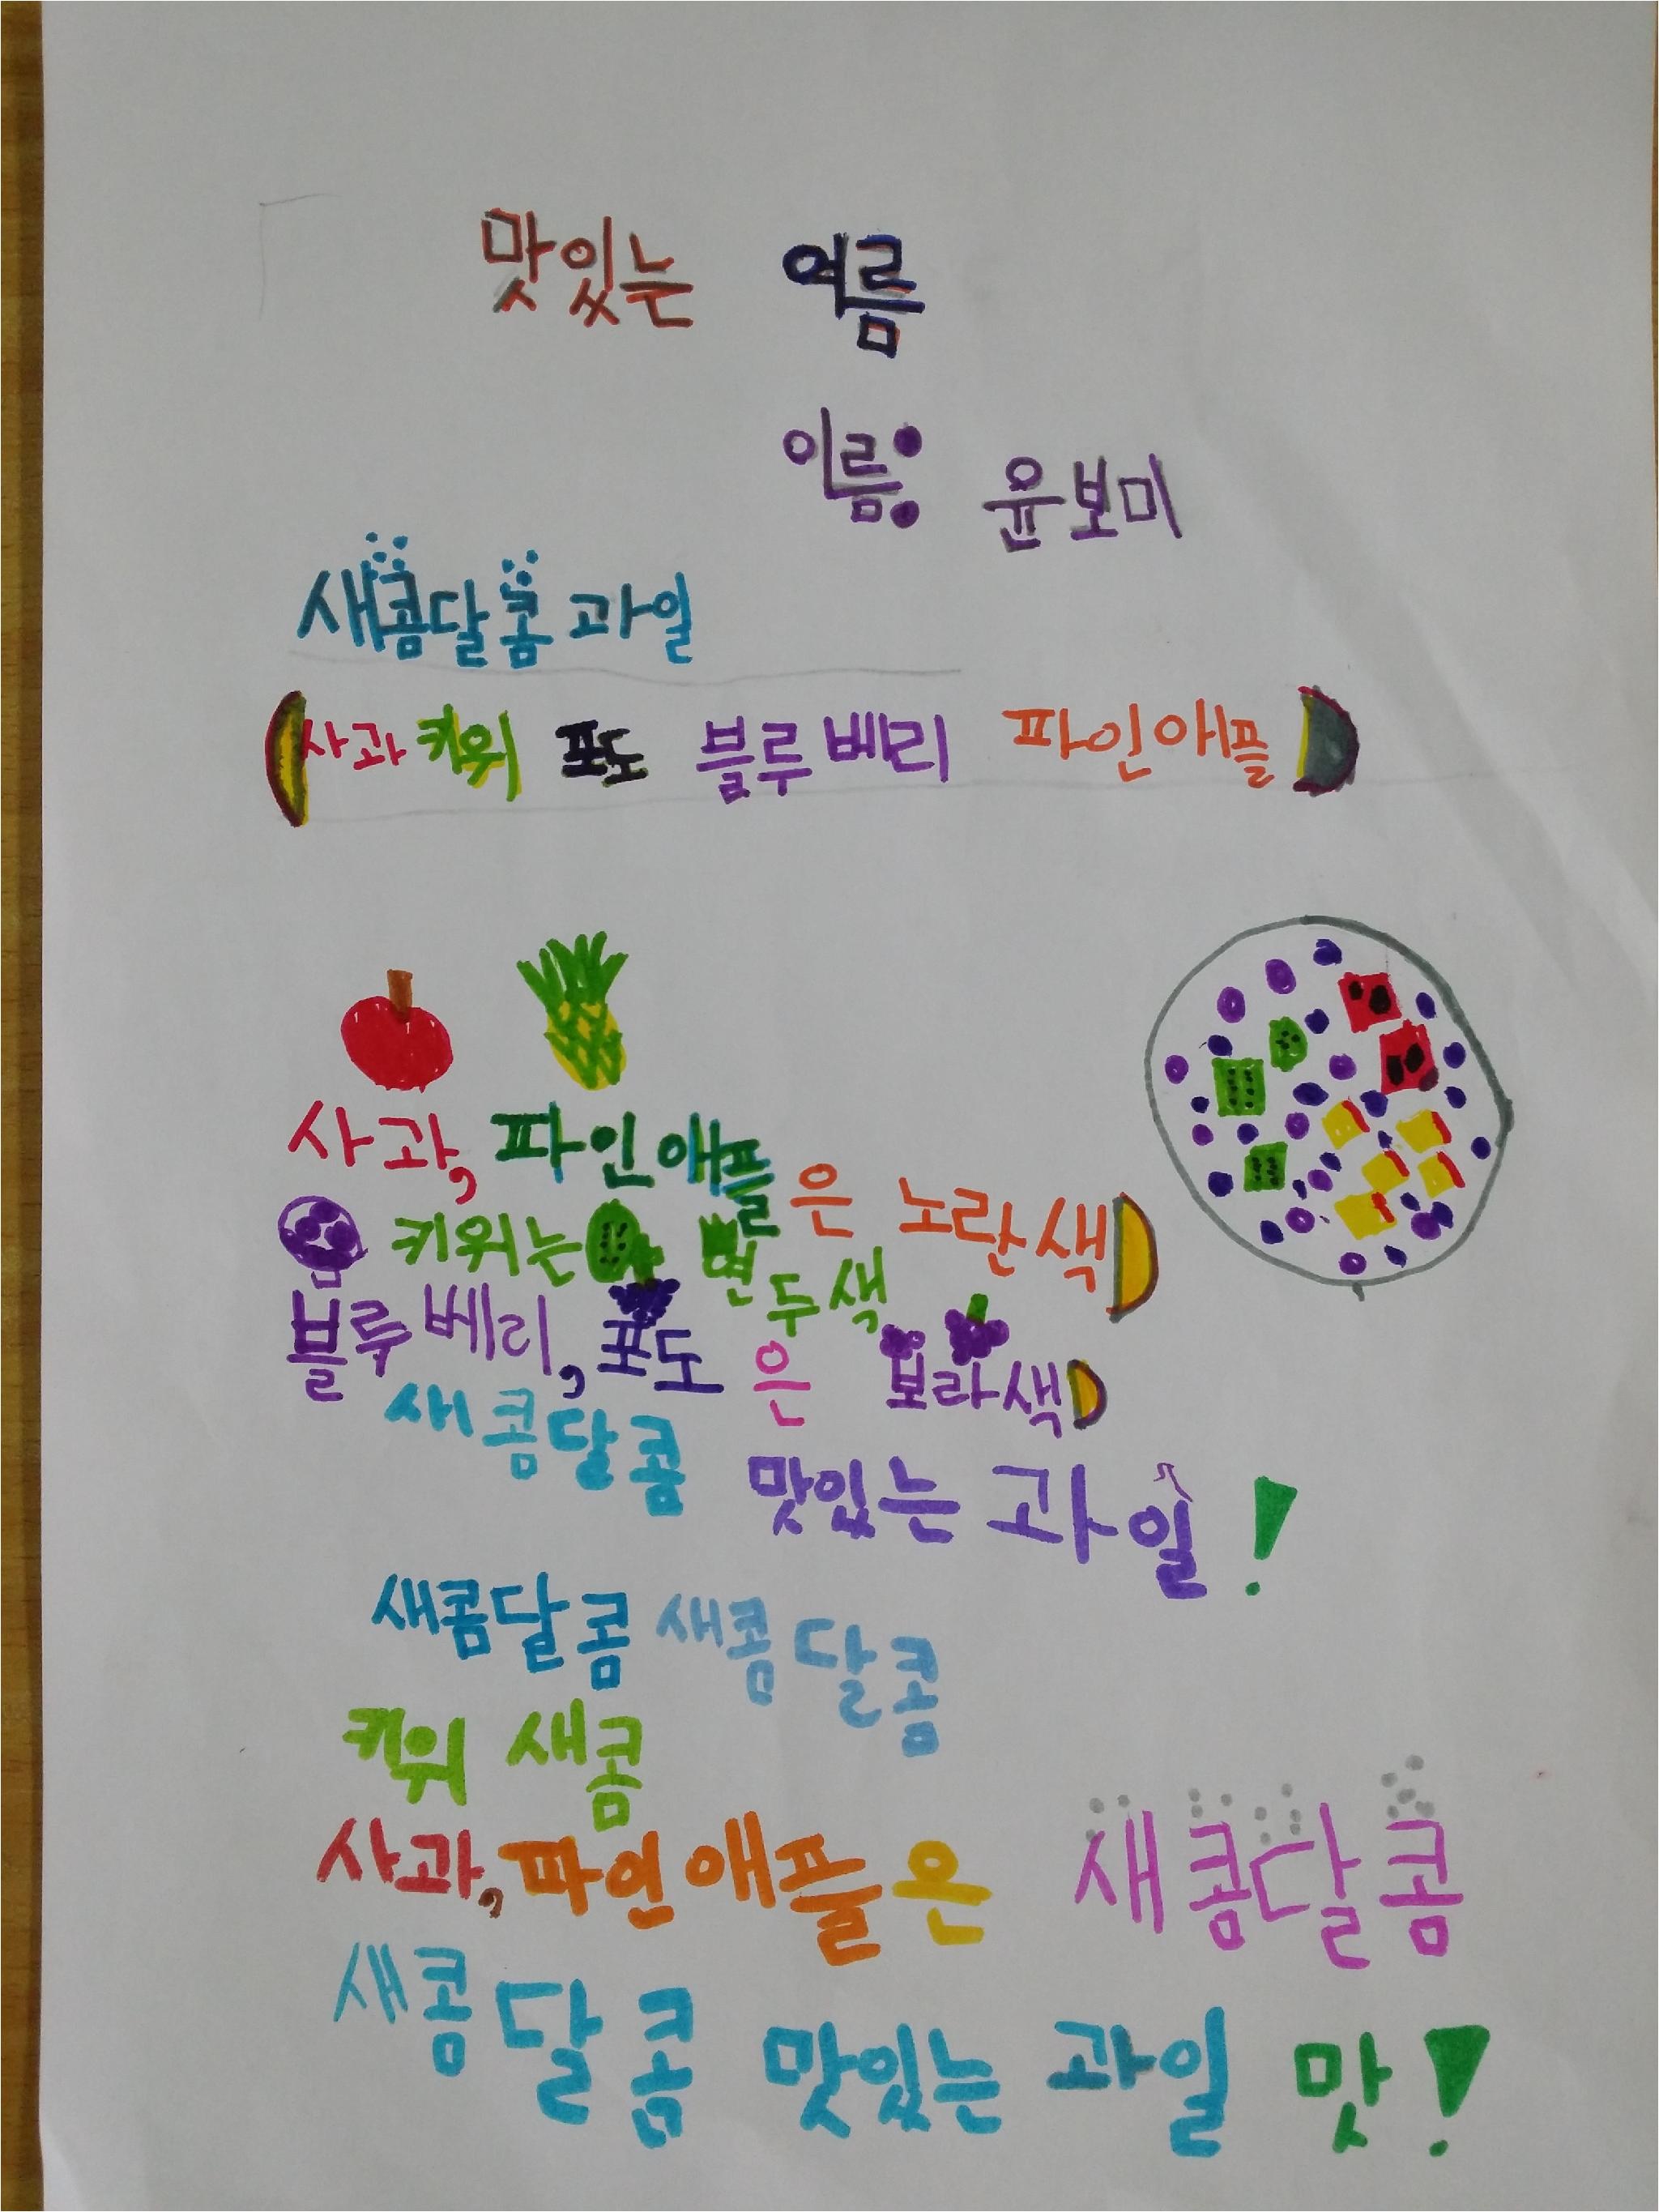 맛있는 여름
이름: 윤보미
새콤달콤 과일
(사과 키위 포도 블루베리 파인애플)
사과, 파인애플은 노란색
키위는 연두색
블루베리, 포도은 보라색
새콤달콤 맛있는 과일!
새콤달콤 새콤달콤
키위 새콤
사과, 파인애플은 새콤달콤
새콤달콤 맛있는 과일 맛!